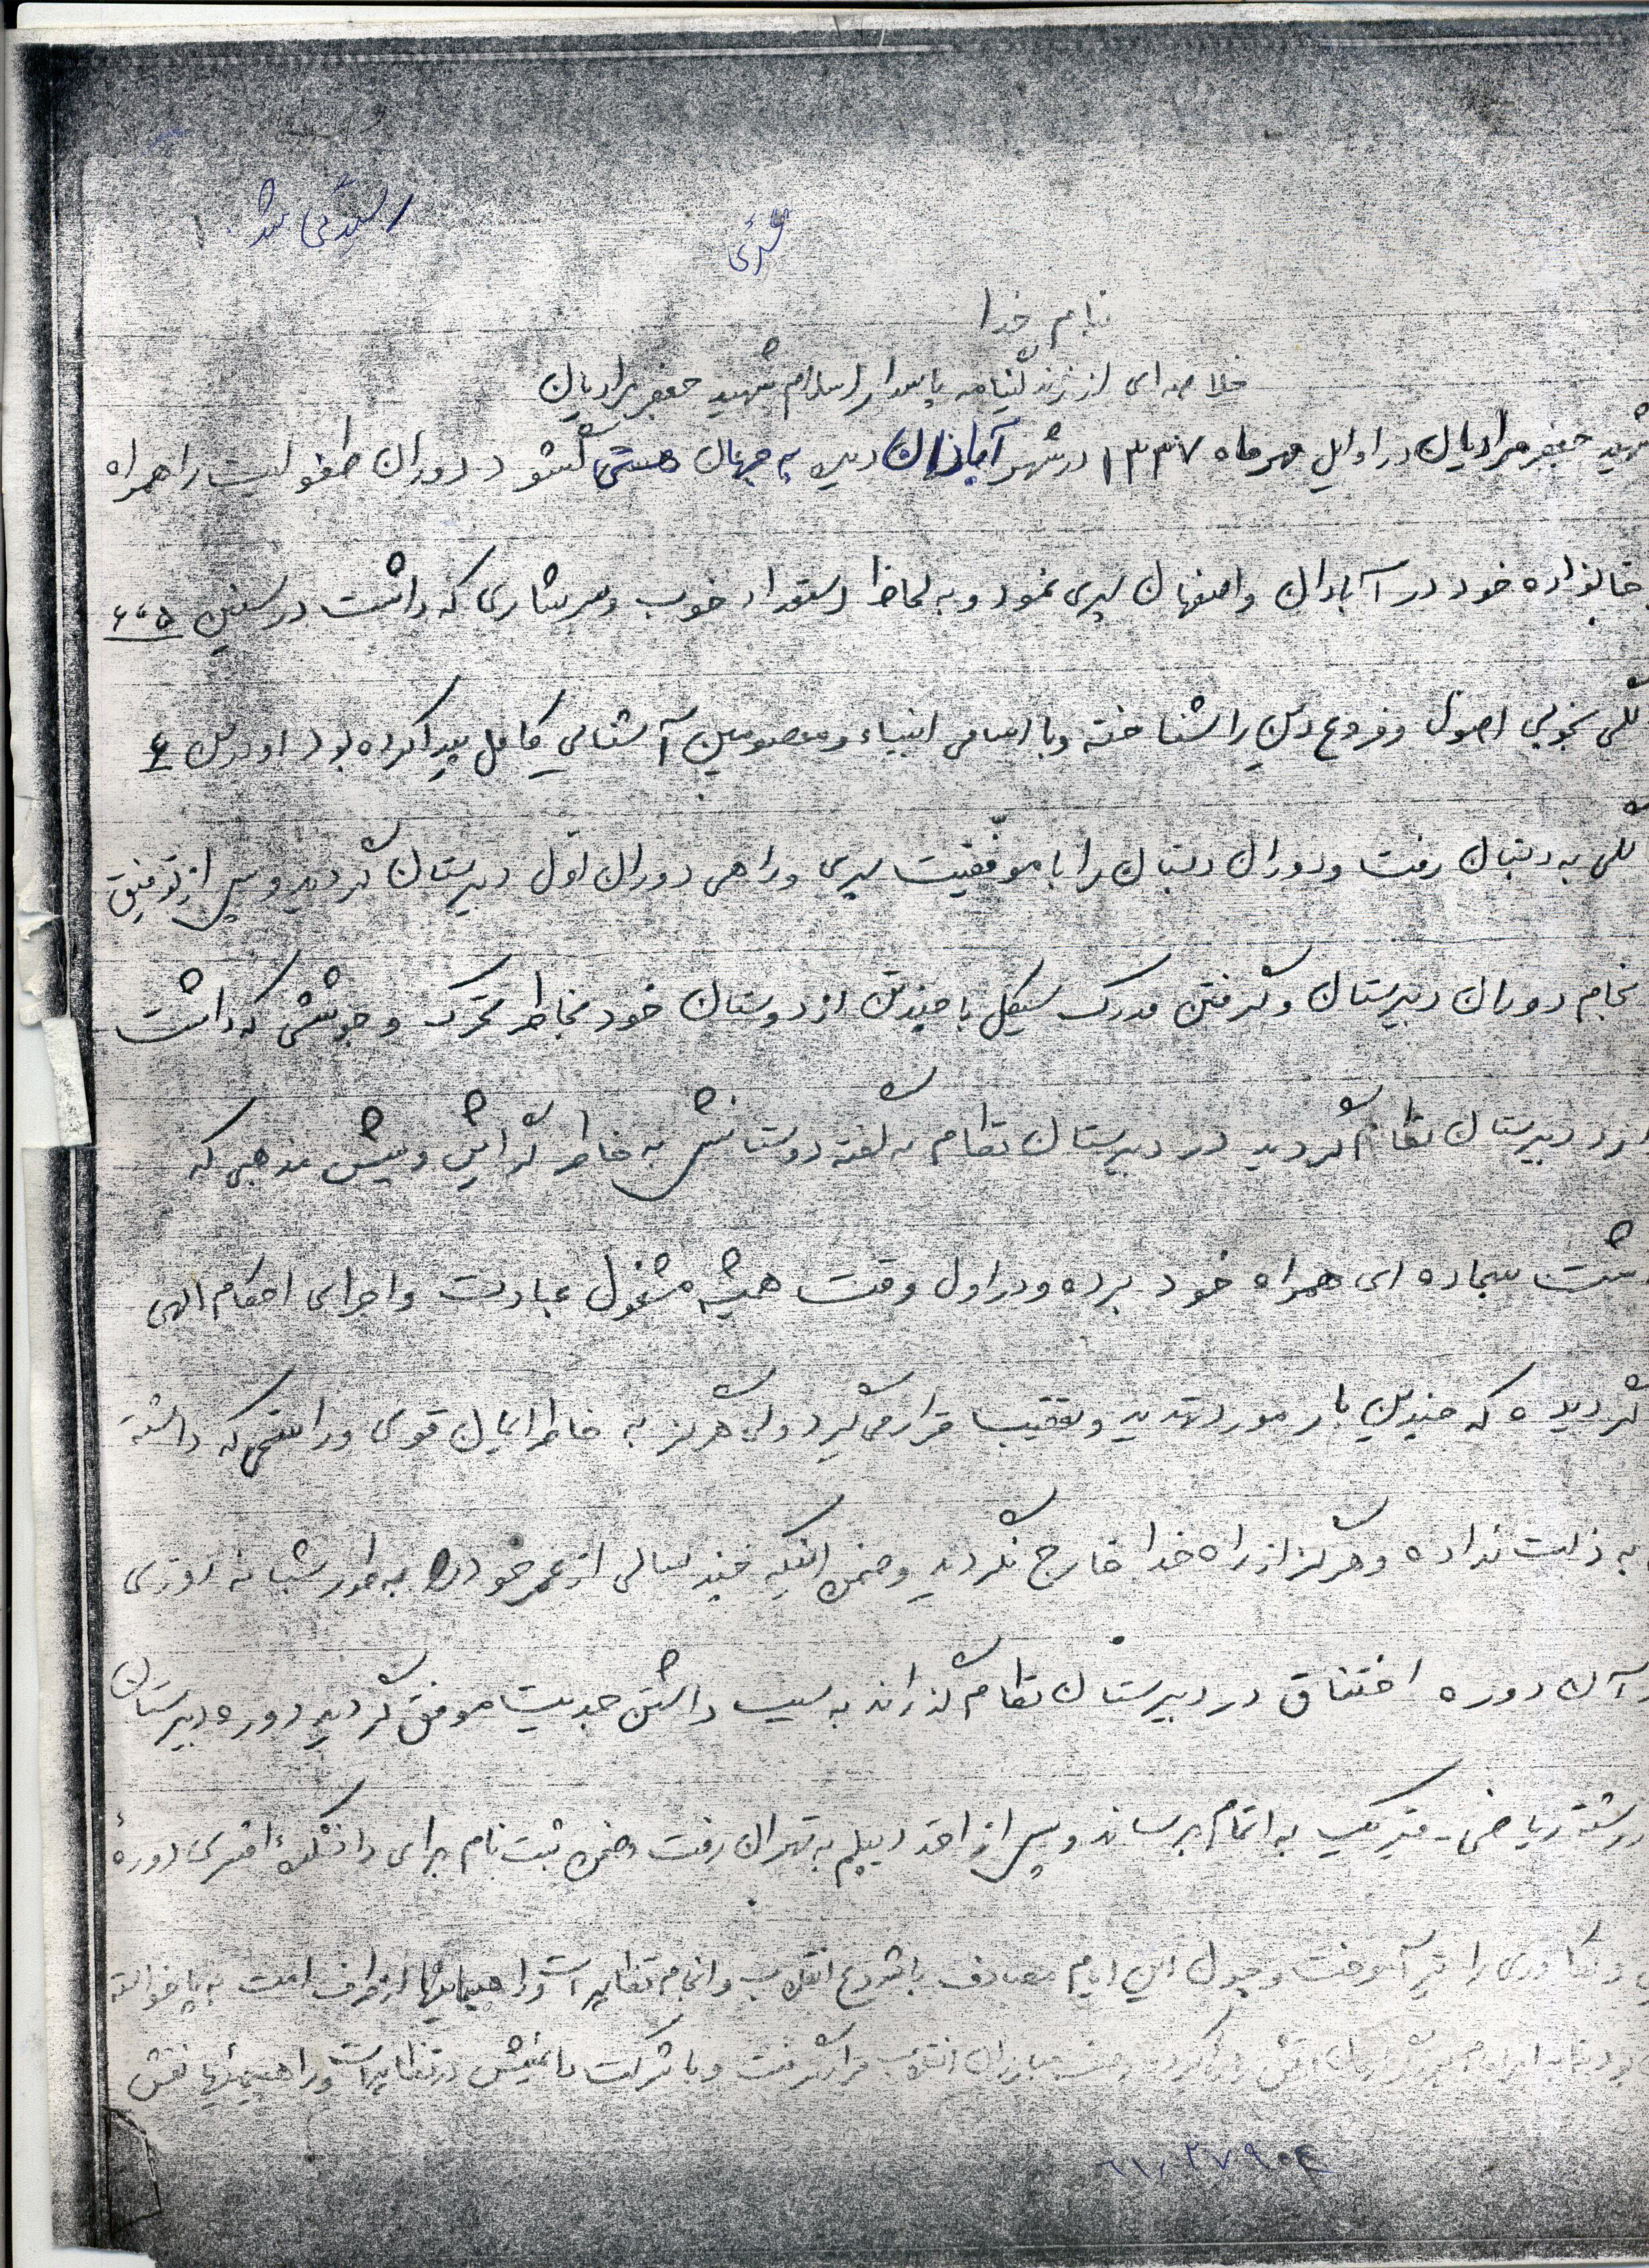 رسیدگی شد.
بنام خدا
خلاصه ای از زندگینامه پاسدار اسلام شهید جعفر مرادیان
شهید جعفر مرادیان در اوایل مهرماه ۱۳۳۷ در شهر آبادان دیده به جهان هستی گشود دوران طفولیت را همراه
خانواده خود در آبادان و اصفهان سپری نمود و به لحاظ استعداد خوب و سرشاری که داشت در سنین ۵،۶
لگی بخوبی اصول و فروع دین را شناخته و با اسامی انبیاء و معصومین آشنائی کامل پیدا کرده بود او در سن ۶
لگی به دبستان رفت و دوران دبستان را با موفقیت سپری و راهی دوران اول دبیرستان گردید و پس از توفیق
نجام دوران دبیرستان و گرفتن مدرک سیکل با چندتن از دوستان خود بخاطر تحرک و جوششی که داشت
دبیرستان نظام گردید در دبیرستان نظام به گفته دوستانش به خاطر گرایش و بینش مذهبی که
شت سجاده ای همراه خود برده و در اول وقت همیشه مشغول عبادت و اجرای احکام الهی
گردیده که چندین بار مورد تهدید و تعقیب قرار می گیرد ولی هرگز به خاطر ایمان قوی و راسخی که داشته
به ذلت نداده و هرگز از راه خدا خارج نگردید و ضمن اینکه چند سالی از عمر خود را به طور شبانه روزی
آن دوره اختناق در دبیرستان نظام گذراند به سبب داشتن جدیت موفق گردید دوره دبیرستان
در رشته ریاضی - فیزیک به اتمام برساند و پس از اخذ دیپلم به تهران رفت و ضمن ثبت نام برای دانشکده افسری دوره
تکاوری را نیز آموخت و چون این ایام مصادف با شروع انقلاب و انجام تظاهرات و راهپیمائیها از طرف امت به پا خواسته
بود بنا به امر امام انقلاب قرار گرفت و با شرکت دائمیش در تظاهرات و راهپیمائیها نقش